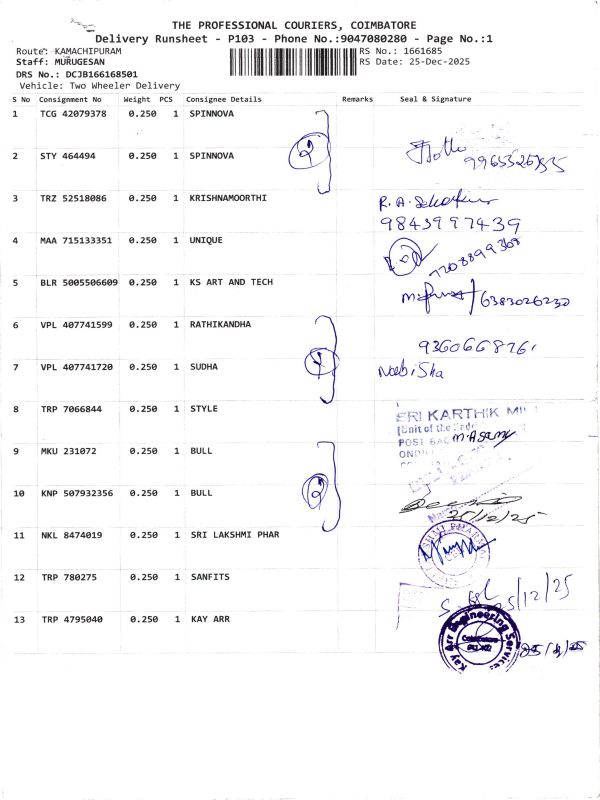 THE PROFESSIONAL COURIERS, COIMBATORE
Delivery Runsheet - P103 - Phone No.:9047080280 - Page No.:1
Route: KAMACHIPURAM RS No.: 1661685
Staff: MURUGESAN RS Date: 25-Dec-2025
DRS No.: DCJB166168501
Vehicle: Two Wheeler Delivery
S No Consignment No Weight PCS Consignee Details Remarks Seal & Signature
1 TCG 42079378 0.250 1 SPINNOVA
2 STY 464494 0.250 1 SPINNOVA
3 TRZ 52518086 0.250 1 KRISHNAMOORTHI R.A.
9843997439
4 MAA 715133351 0.250 1 UNIQUE
5 BLR 5005506609 0.250 1 KS ART AND TECH 6383026230
6 VPL 407741599 0.250 1 RATHIKANDHA
7 VPL 407741720 0.250 1 SUDHA
8 TRP 7066844 0.250 1 STYLE SRI KARTHIK
(Unit of the
POST
9 MKU 231072 0.250 1 BULL
10 KNP 507932356 0.250 1 BULL
25/12/25
11 NKL 8474019 0.250 1 SRI LAKSHMI PHAR
12 TRP 780275 0.250 1 SANFITS 25/12/25
13 TRP 4795040 0.250 1 KAY ARR Kay Arr Engineering Services
Coimbatore